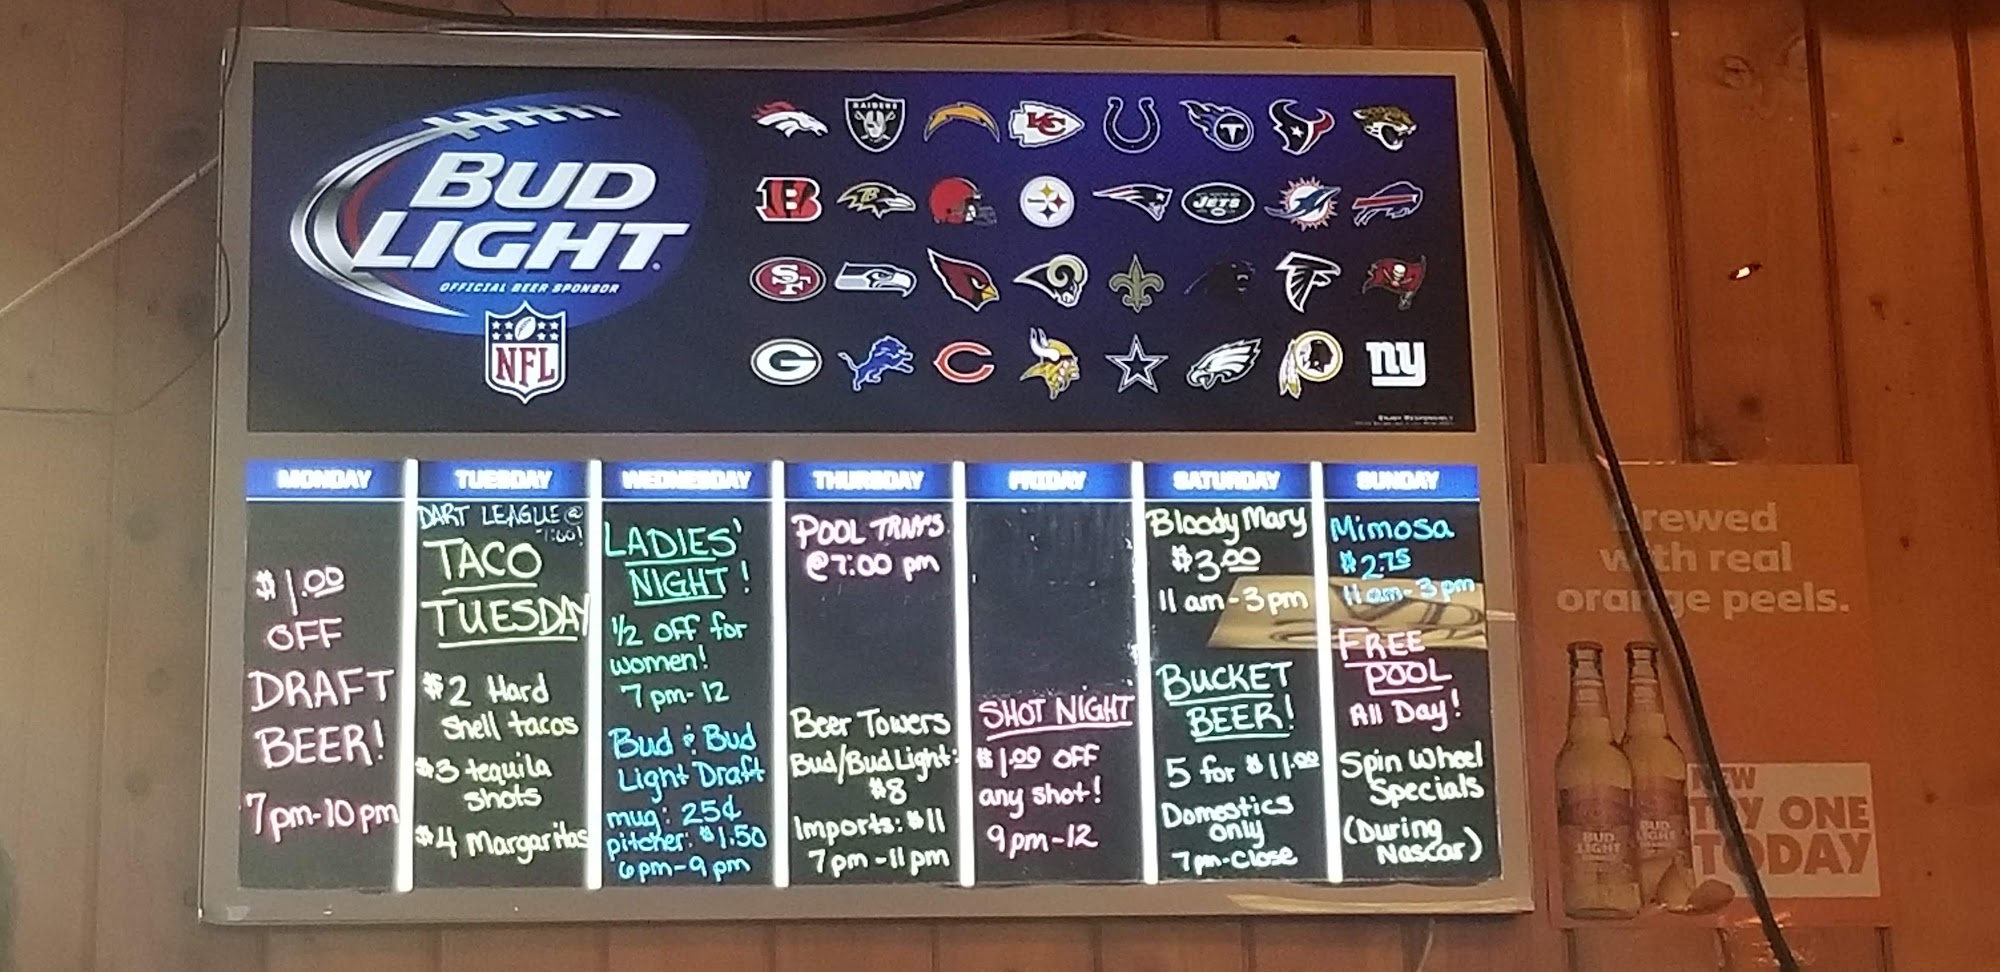 BUD
LIGHT
OFFICIAL BEER SPONSOR
NFL
RAIDERS
KC
T
B
B
JETS
SF
G
C
ny
MONDAY
$1.00
OFF
DRAFT
BEER!
7pm-10pm
TUESDAY
DART LEAGUE @
7:00!
TACO
TUESDAY
$2 Hard
Shell tacos
$3 tequila
shots
$4 Margaritas
WEDNESDAY
LADIES'
NIGHT!
1/2 OFF for
women!
7pm-12
Bud & Bud
Light Draft
mug: 25¢
pitcher: $1.50
6pm-9pm
THURSDAY
POOL TRNYS
@7:00 pm
Beer Towers
Bud/Bud Light:
$8
Imports: $11
7pm-11pm
FRIDAY
SHOT NIGHT
$1.00 OFF
any shot!
9pm-12
SATURDAY
Bloody Mary
$3.00
11am-3pm
BUCKET
BEER!
5 for $11.00
Domestics
only
7pm-Close
SUNDAY
Mimosa
$2.75
11am-3pm
FREE
POOL
All Day!
Spin Wheel
Specials
(During
Nascar)
rewed
with real
orange peels.
NEW
TRY ONE
TODAY
BUD
LIGHT
BUD
LIGHT